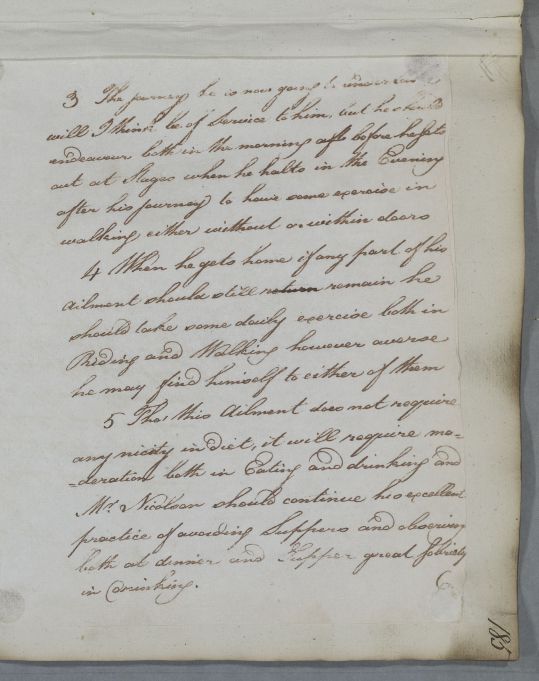 3 The journey he is now going to undertake
will I think be of Service to him, but he should
endeavour both in the morning before he sets
out at Stages when he halts in the Evening
after his journey to have some exercise in
walking either without or within doors
4 When he gets home if any part of his
ailment should still return remain he
should take some daily exercise both in
Riding and Walking however averse
he may find himself to either of them
5 Tho' this Ailment does not require
any nicity in Diet, it will require mo-
-deration both in Eating and drinking and
Mr. Nicolson should continue his excellent
practice of avoiding Suppers and observing
both at dinner and Supper great Sobriety
in drinking.
6
185